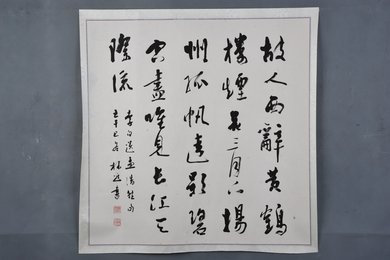 故人西辭黃鶴
樓煙花三月下揚
州孤帆遠影碧
空盡唯見長江天
際流
李白送孟浩然
書